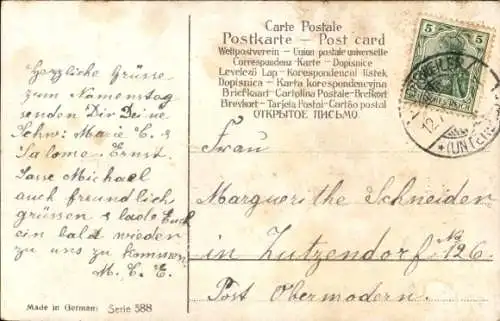 Carte Postale
Postkarte - Post card
Weltpostverein - Union postale universelle
Correspondenz-Karte - Dopisnice
Levelező Lap - Korespondenční lístek
Dopisnica - Karta korespondencyjna
Briefkaart - Cartolina Postale - Brefkort
Brevkort - Tarjeta Postal - Cartão postal
ОТКРЫТОЕ ПИСЬМО.
5 5
WEILER
12.
(UNTER
Herzliche Grüsse
zum Namenstag
senden Dir Deine
Schw: Marie E. &
Salome. Ernst.
Lasse Michael
auch freundlich
grüssen & lade Euch
ein bald wieder
zu uns zu kommen
M. E. E.
Frau
Marguerithe Schneider
in Zutzendorf No 126
Post Obermodern.
Made in Germany Serie 588